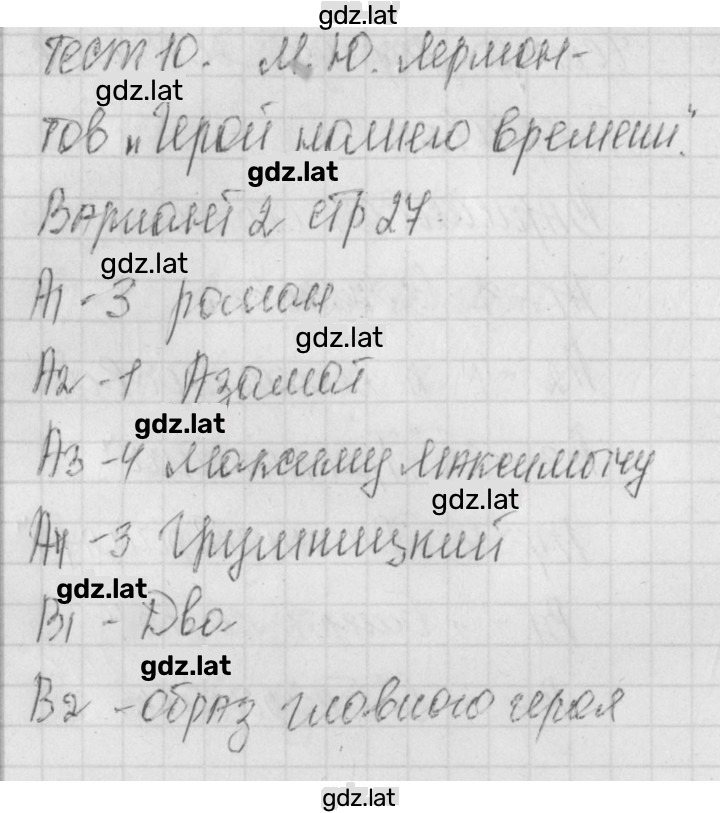 gdz.lat
Тест 10. М. Ю. Лермон-
gdz.lat
тов „Герой нашего времени".
gdz.lat
Вариант 2 стр 27.
gdz.lat
А1 - 3 роман
gdz.lat
А2 - 1 Азамат
gdz.lat
А3 - 4 Максиму Максимычу
gdz.lat
А4 - 3 Грушницкий
gdz.lat
В1 - Два
gdz.lat
В2 - образ главного героя
gdz.lat